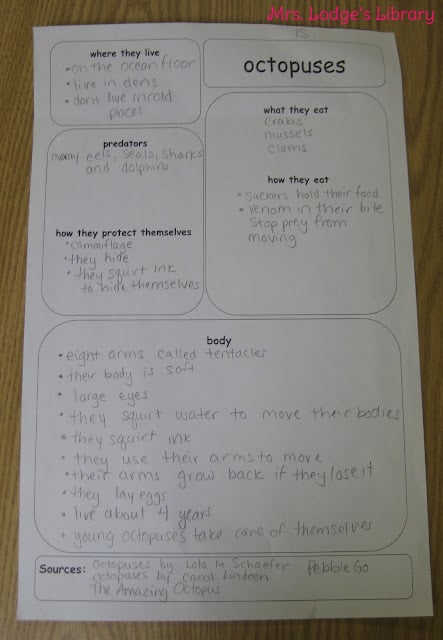 Mrs. Lodge's Library
15
where they live
• on the ocean floor
• live in dens
• don't live in cold
places
octopuses
what they eat
crabs
mussels
clams
predators
moray eels, seals, sharks
and dolphins
how they eat
• suckers hold their food
• venom in their bite
stop prey from
moving
how they protect themselves
• camouflage
• they hide
• they squirt ink
to hide themselves
body
• eight arms called tentacles
• their body is soft
• large eyes
• they squirt water to move their bodies
• they squirt ink
• they use their arms to move
• their arms grow back if they lose it
• they lay eggs
• live about 4 years
• young octopuses take care of themselves
Sources: Octopuses by Lola M Schaefer Pebble Go
octopuses by Carol Lindeen
The Amazing Octopus